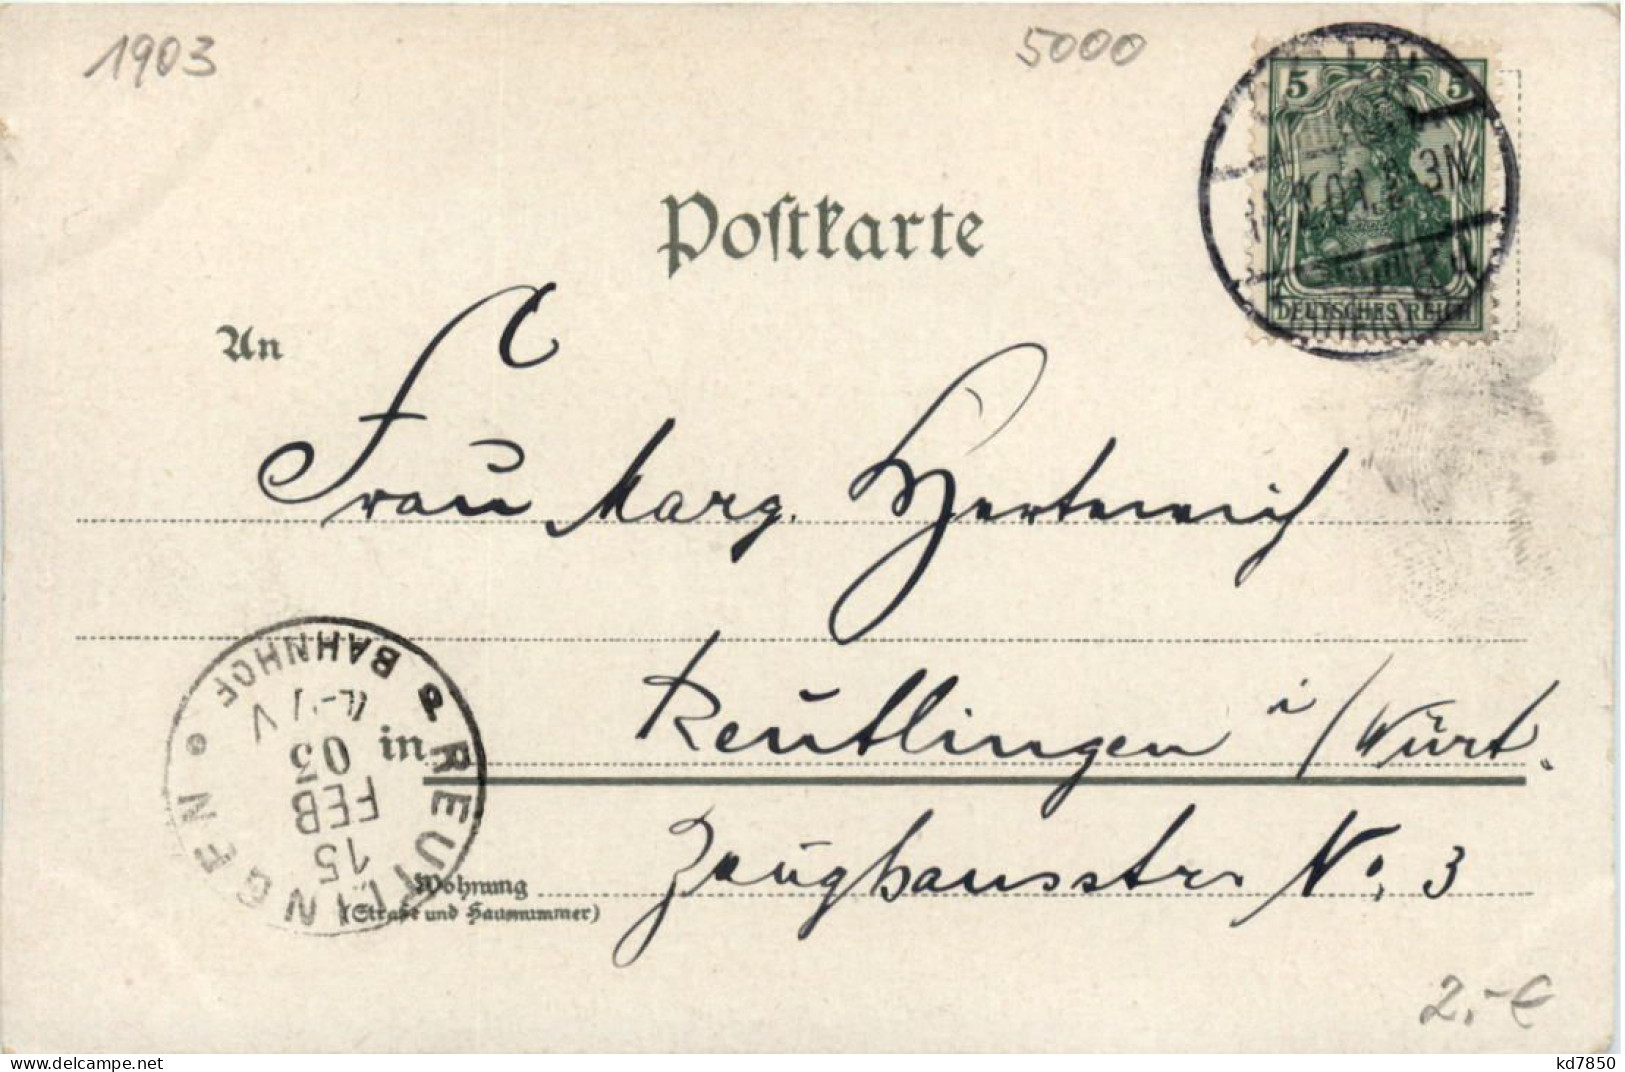 1903
5000
5 5
3N
DEUTSCHES REICH
Postkarte
An
Frau Marg. Herterich
in Reutlingen i/Würt.
Wohnung Zeughausstr. No. 3
(Straße und Hausnummer)
REUTLINGEN
BAHNHOF
V
03
FEB
15
2,-€
kd7850